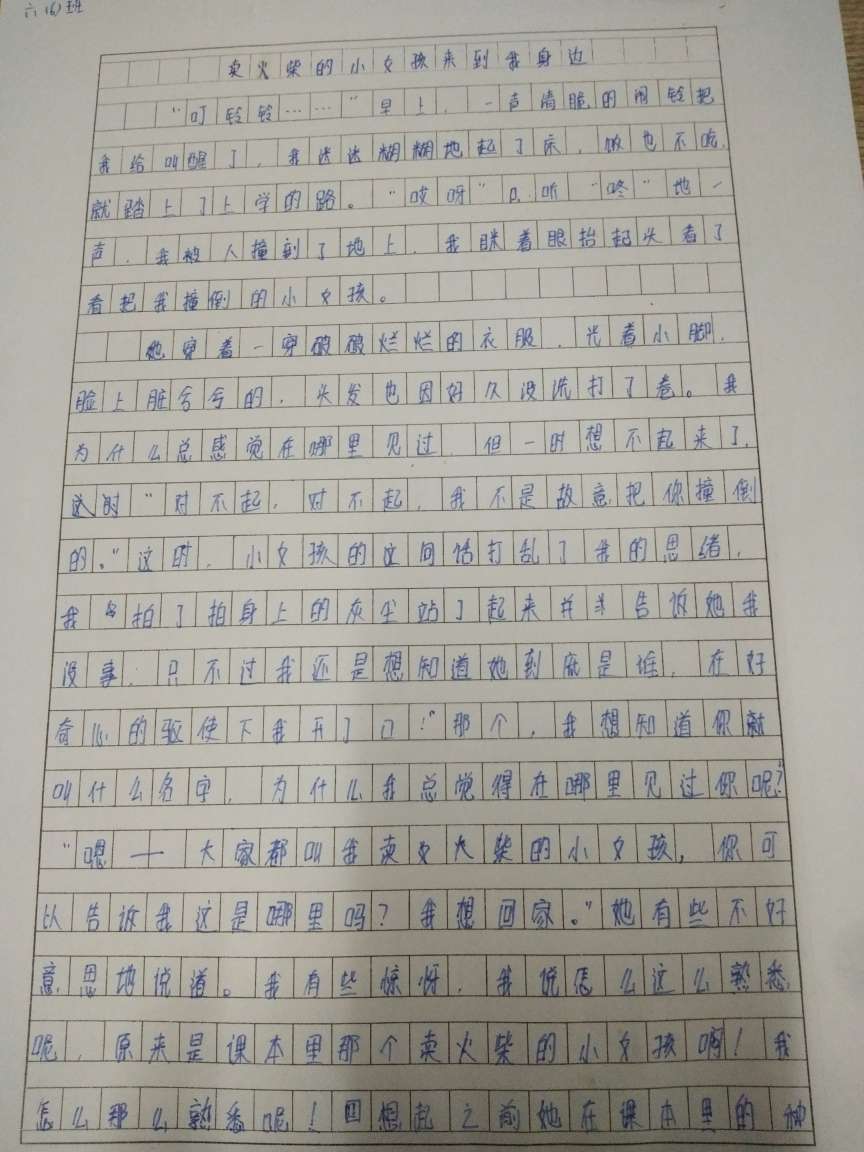 六(6)班
卖火柴的小女孩来到我身边
“叮铃铃……”早上，一声清脆的闹铃把
我给叫醒了，我迷迷糊糊地起了床，饭也不吃，
就踏上了上学的路。“哎呀”只听“咚”地一
声，我被人撞到了地上，我眯着眼抬起头看了
看把我撞倒的小女孩。
她穿着一穿破破烂烂的衣服，光着小脚，
脸上脏兮兮的，头发也因好久没洗打了卷。我
为什么总感觉在哪里见过，但一时想不起来了，
这时“对不起，对不起，我不是故意把你撞倒
的。”这时，小女孩的这句话打乱了我的思绪，
我拍了拍身上的灰尘站了起来并告诉她我
没事，只不过我还是想知道她到底是谁，在好
奇心的驱使下我开了口！“那个，我想知道你就
叫什么名字，为什么我总觉得在哪里见过你呢？”
“嗯——大家都叫我卖女火柴的小女孩，你可
以告诉我这是哪里吗？我想回家。”她有些不好
意思地说道。我有些惊讶，我说怎么这么熟悉
呢，原来是课本里那个卖火柴的小女孩啊！我
怎么那么熟悉呢！回想起之前她在课本里的种